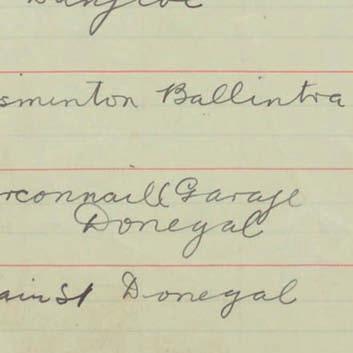 sminton Ballintra
rconnaill Garage
Donegal
ain St Donegal